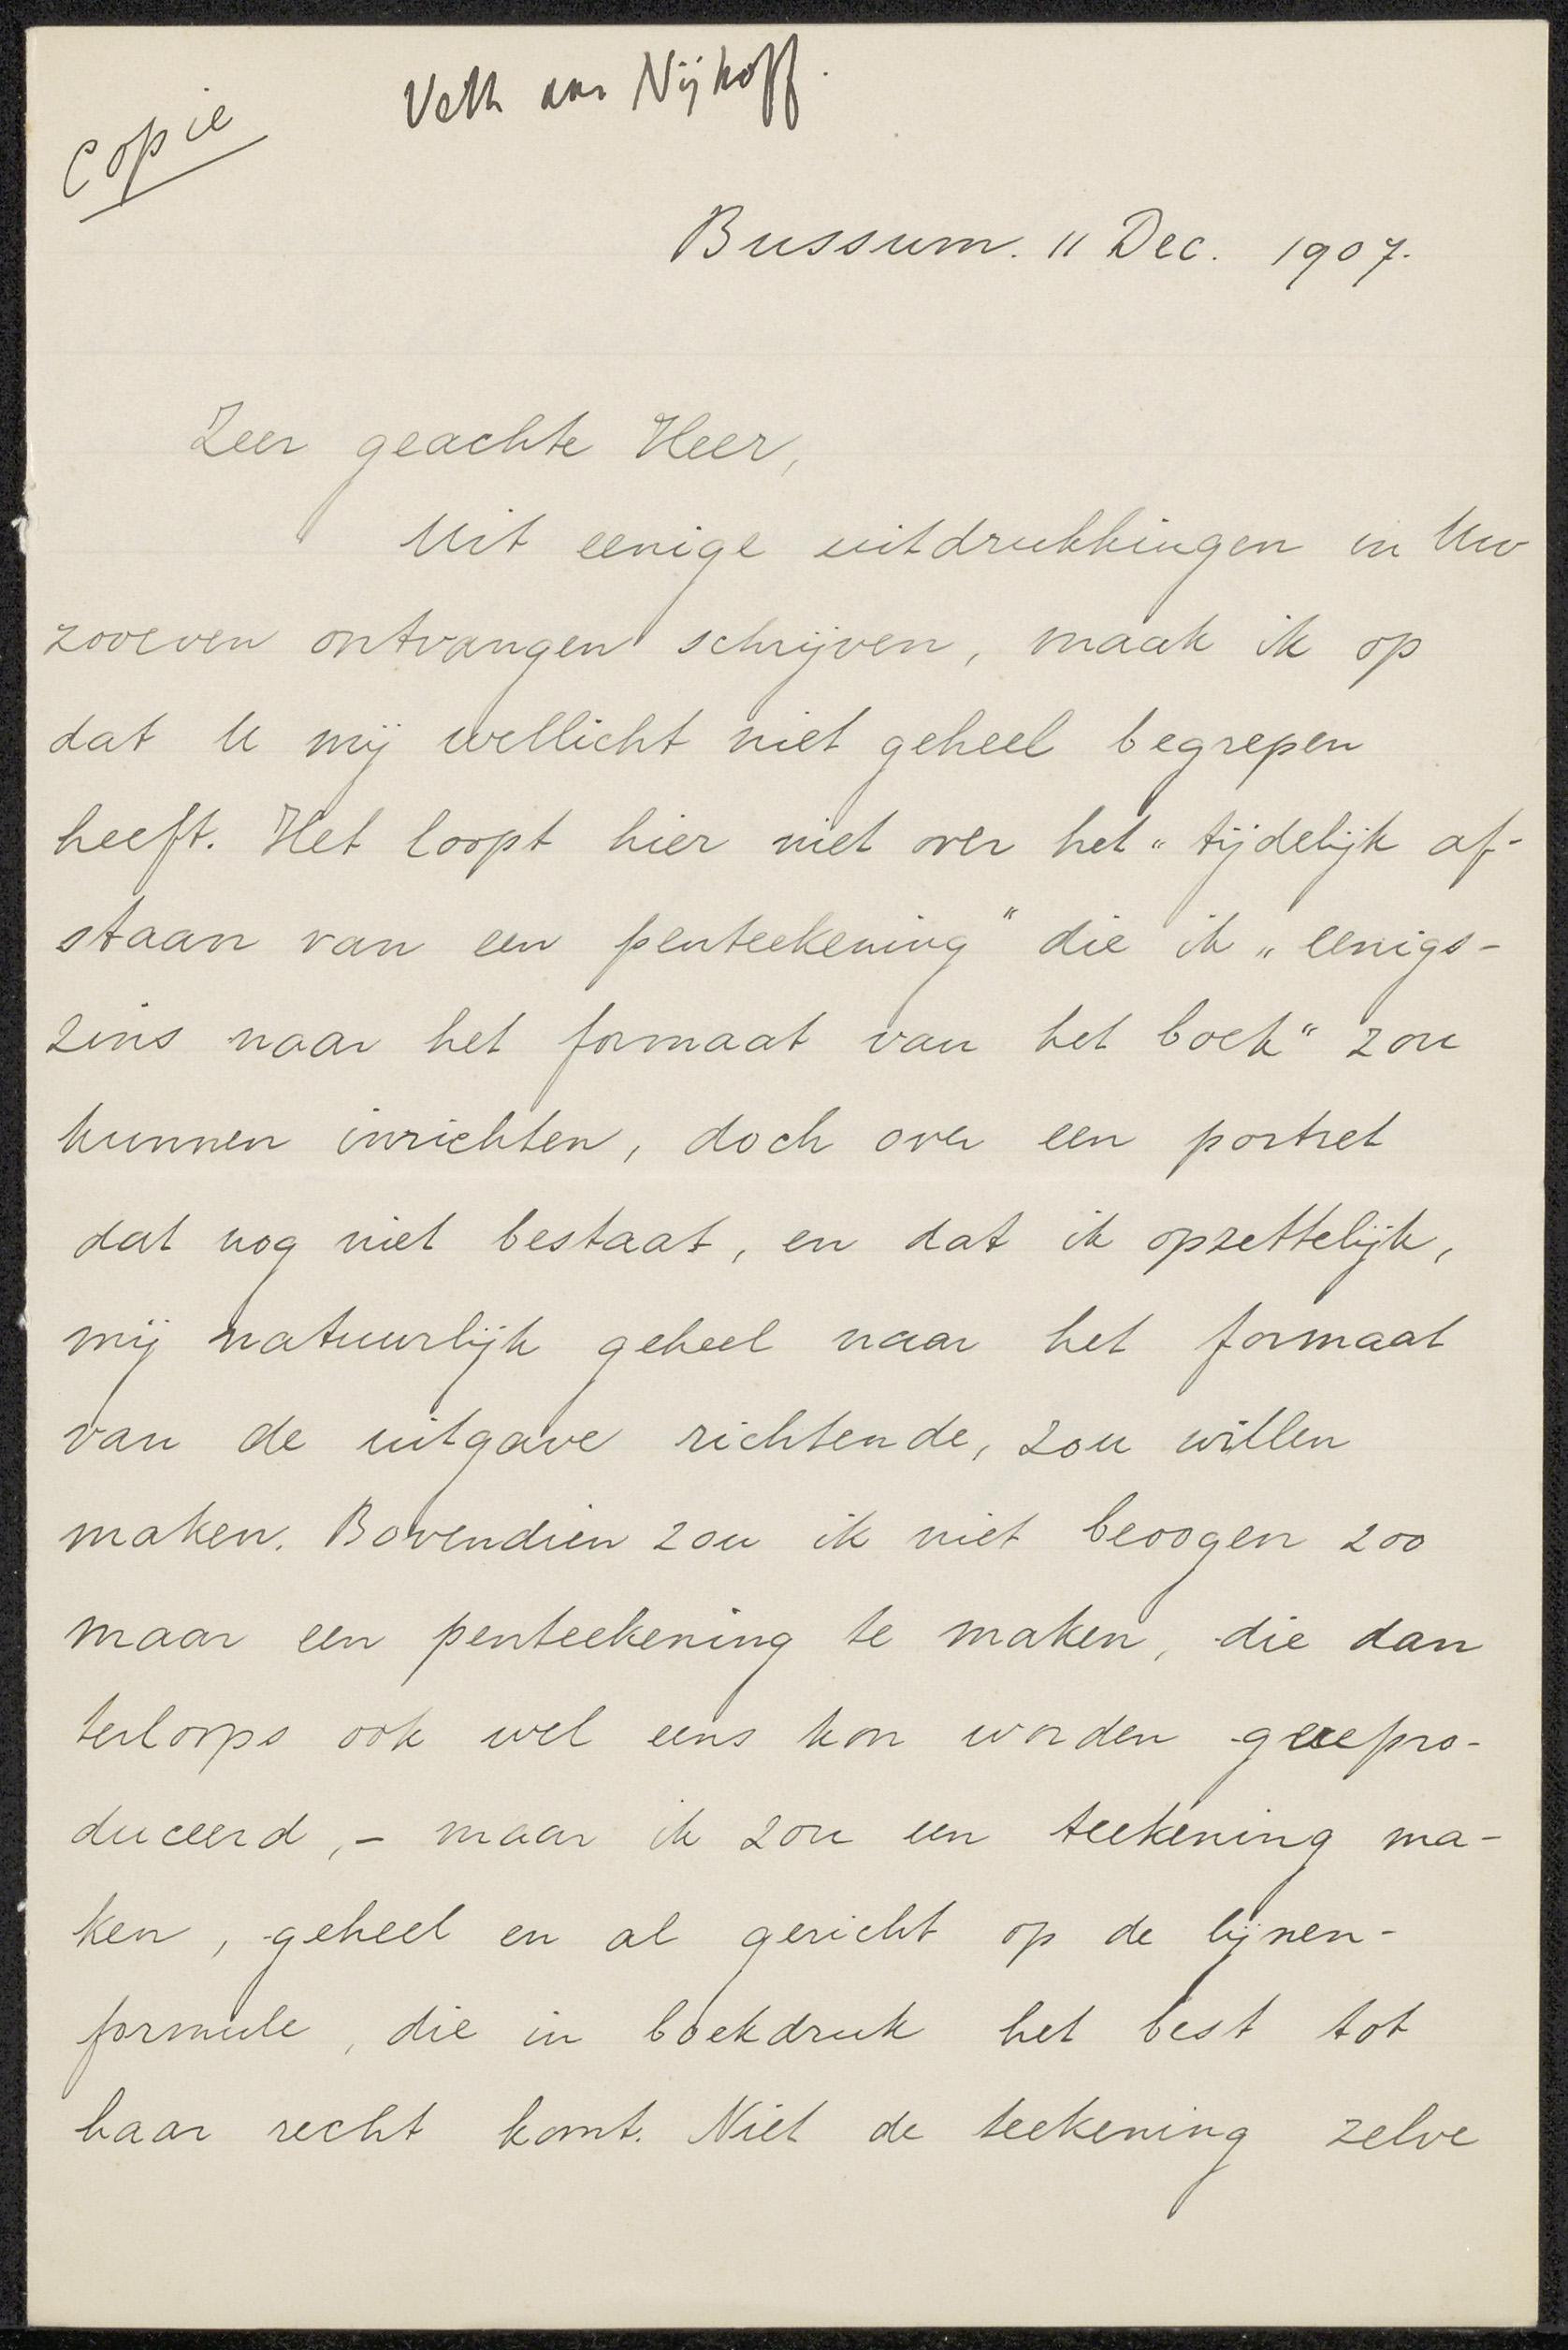 Copie
Veth aan Nijhoff.
Bussum. 11 Dec. 1907.
Zeer geachte Heer,
Uit eenige uitdrukkingen in Uw
zooeven ontvangen schrijven, maak ik op
dat U mij wellicht niet geheel begrepen
heeft. Het loopt hier niet over het „tijdelijk af-
staan van een penteekening“ die ik „eenigs-
zins naar het formaat van het boek“ zou
kunnen inrichten, doch over een portret
dat nog niet bestaat, en dat ik opzettelijk,
mij natuurlijk geheel naar het formaat
van de uitgave richtende, zou willen
maken. Bovendien zou ik niet beoogen zoo
maar een penteekening te maken, die dan
terloops ook wel eens kon worden gerepro-
duceerd, - maar ik zou een teekening ma-
ken, geheel en al gericht op de lijnen-
formule, die in boekdruk het best tot
haar recht komt. Niet de teekening zelve